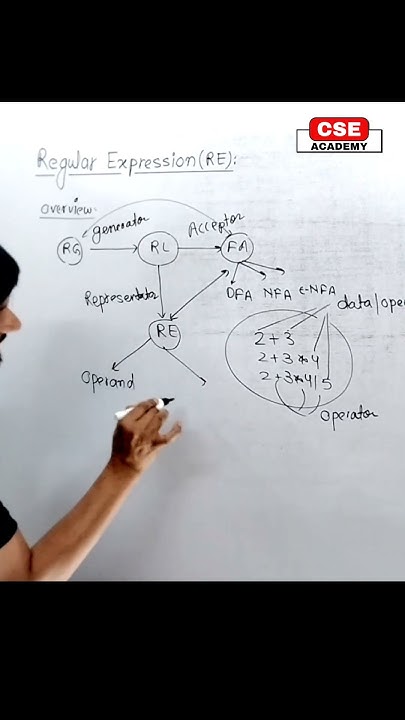 CSE
ACADEMY
Regular Expression (RE):
Overview:
generator
Acceptor
RG
RL
FA
DFA NFA ε-NFA
Representator
data/oper
RE
2+3
2+3*4
2+3*4/5
Operand
Operator